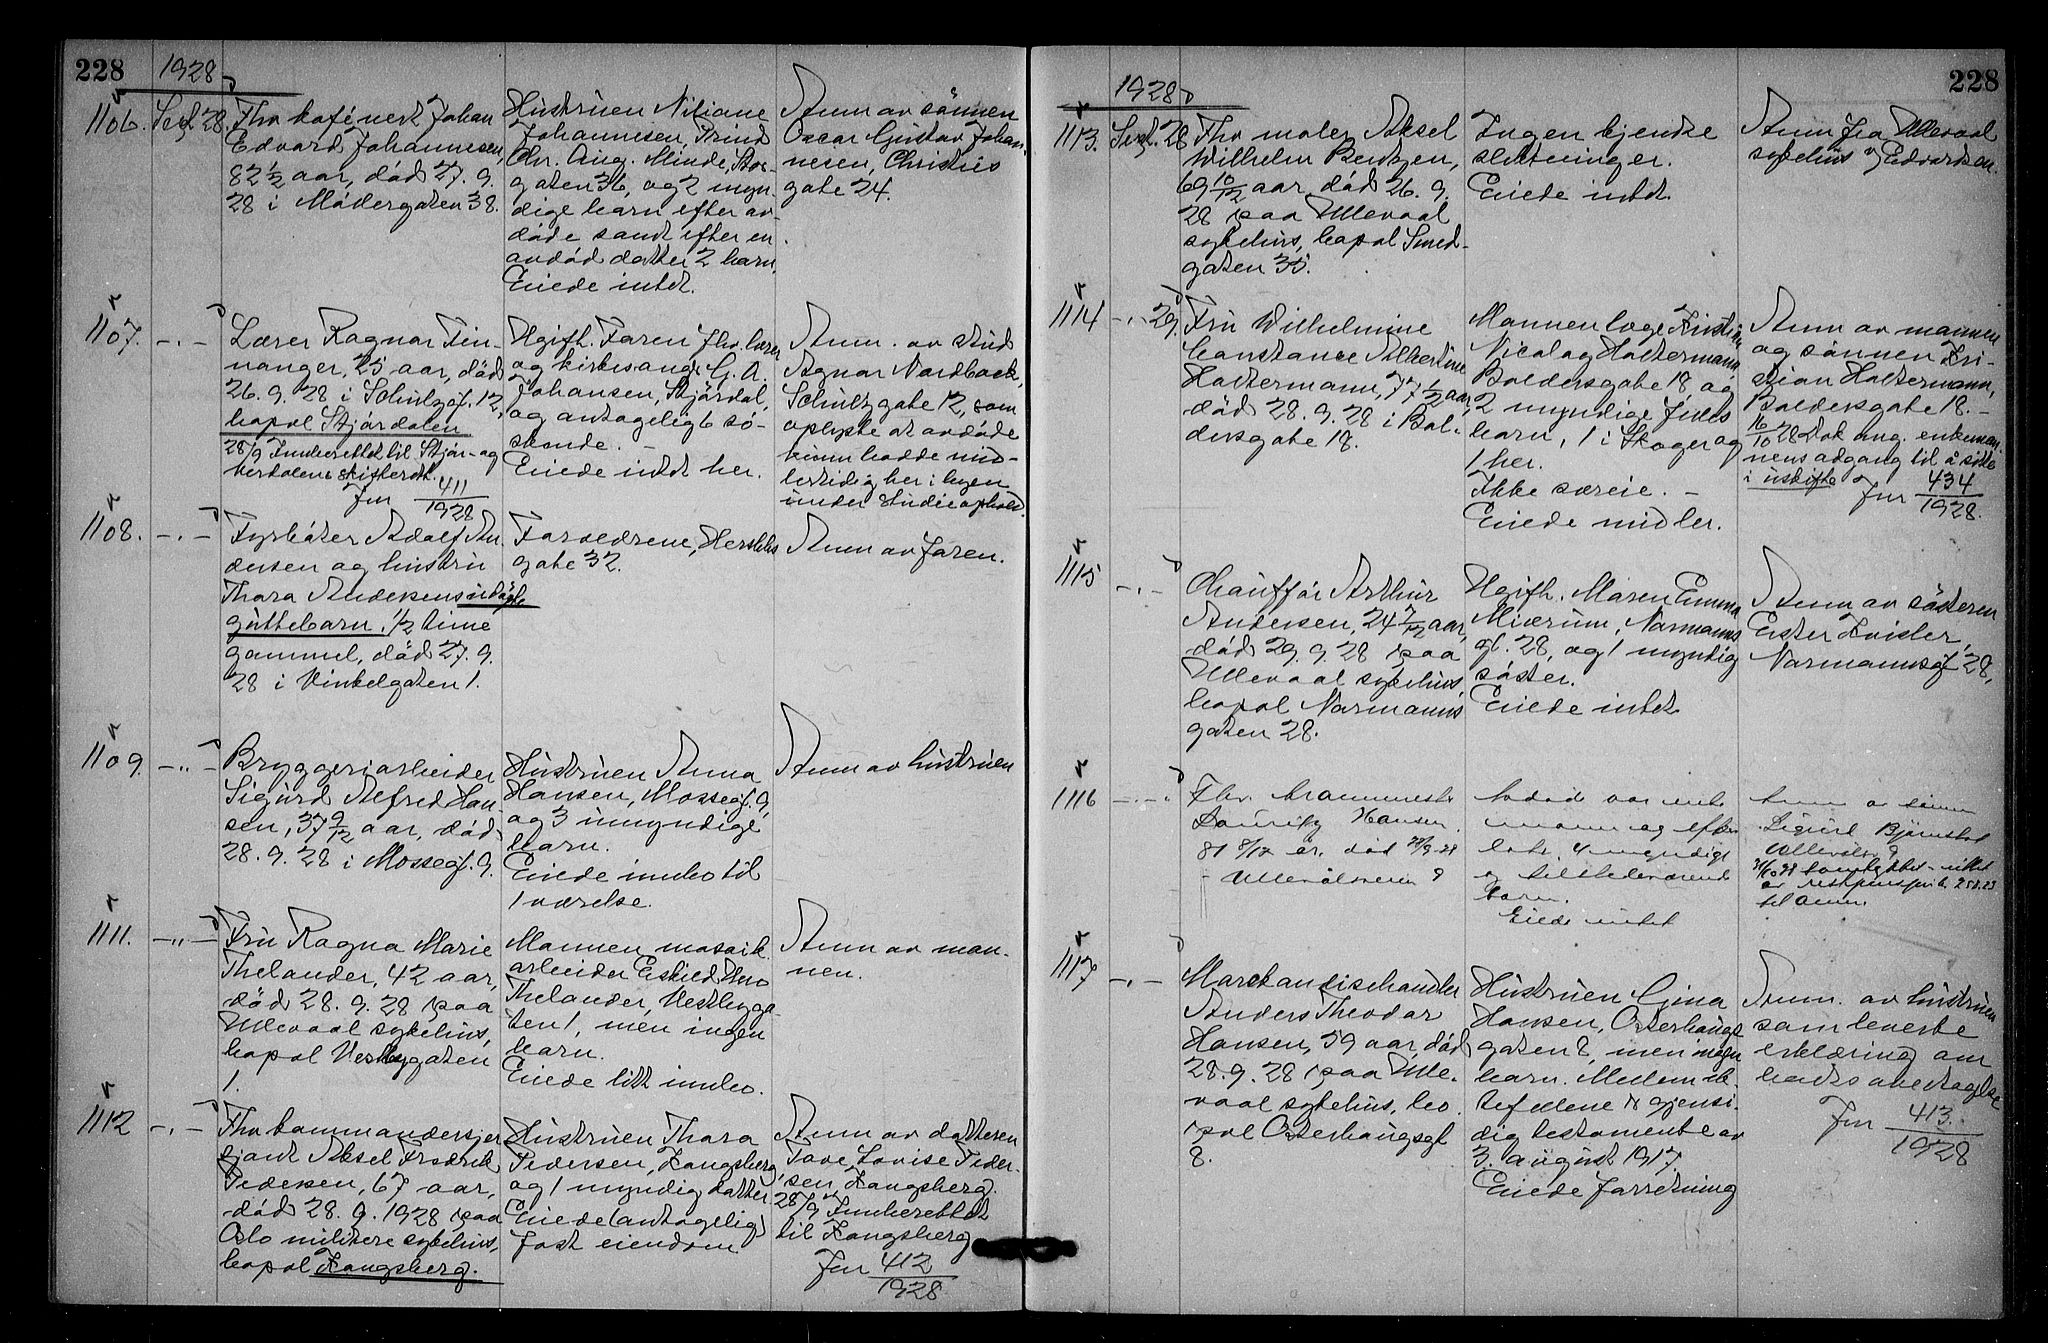 228
1928
1106. Sept 28.
Fhv kafévert Johan
Edvard Johannessen,
82 1/2 aar, död 27. 9.
28 i Mødergaten 38.
Hustruen
Johannesen,
Chr. Aug. Minde, Stor-
gaten 36, og 2 myn-
dige barn efter av-
döde samt efter en
avdød datter 2 barn.
Eiede intet.
Anm av sönnen
Oscar Gustav Johan-
nesen, Christies
gate 24.
1107. -.-
Lærer Ragnar Fin-
nanger, 25 aar, död
26. 9. 28 i Schultzgt. 12,
bopæl Stjördalen
28/9 Innberettet til Stjør- og
Verdalens skifterett.
Jnr 411/1928
Ugift. Faren fhv. lærer
og kirkesang. G. A.
Johansen, Stjørdal,
og antagelig 6 sø-
skende. -
Eiede intet her.
Anm. av stud
Agnar Nordback,
Schultzgate 12, som
oplyste at avdøde
kunn hadde mid-
lertidig her i byen
under studieophold.
1108. -.-
Fyrbøter Adolf An-
dersen og hustru
Thora Andersens udøpte
guttebarn, 1/2 time
gammel, död 27. 9.
28 i Vinkelgaten 1.
Forældrene, Herslebs
gate 32.
Anm av faren.
1109. -..-
Bryggeriarbeider
Sigurd Alfred Han-
sen, 37 9/12 aar, död
28. 9. 28 i Mossegt. 9.
Hustruen Anna
Hansen, Mossegt. 9,
og 3 umyndige
barn.
Eiede innbo til
1 værelse.
Anm av hustruen
1111. -..-
Fru Ragna Marie
Thelander, 42 aar,
död 28. 9. 28 paa
Ullevaal sykehus,
bopæl Vestbygaten
1.
Mannen mosaik
arbeider Eskild Uno
Thelander, Vestbyga-
ten 1, men ingen
barn.
Eiede litt innbo.
Anm av man-
nen.
1112 -.-
Fhv kommandersjer
sjant Aksel Fredrik
Pedersen, 67 aar,
död 28. 9. 1928 paa
Oslo militære sykehus,
bopæl Kongsberg.
Hustruen Thora
Pedersen, Kongsberg,
og 1 myndig datter
Eiede (antagelig)
fast eiendom
Anm av datteren
Tove Lovise Peder-
sen, Kongsberg.
28/9 Innberettet
til Kongsberg
Jnr 412/1928
228
1928
1113. Sept. 28
Fhv maler Aksel
Wilhelm Bentzen,
69 10/12 aar, död 26. 9.
28 paa Ullevaal
sykehus, bopæl Smed-
gaten 35.
Ingen kjendte
slektninger.
Eiede intet
Anm fra Ullevaal
sykehus v/ Edvardsen.
1114 -.- 29.
Fru Wilhelmine
Constance Albertine
Holtermann, 77 1/2 aar,
död 28. 9. 28 i Bal-
dersgate 18.
Mannen læge Kristian
Nicolay Holtermann,
Baldersgate 18 og
2 myndige fælles
barn, 1 i Skoger og
1 her.
Ikke særeie. -
Eiede midler.
Anm av mannen
og sönnen Kri-
stian Holtermann,
Baldersgate 18. -
16/10 28 Dok ang. enkeman
nens adgang til å sitte
i uskifte Jnr 434/1928.
1115 -.-
Chauffør Arthur
Andersen, 24 7/12 aar,
död 29. 9. 28 paa
Ullevaal sykehus,
bopæl Normanns
gaten 28.
Ugift. Moren Emma
Mierum, Normanns
gt. 28, og 1 myndig
søster.
Eiede intet
Anm av søsteren
Ester Kvisler,
Normannsgt 28,
1116 -.-.
Fhv.
Lauritz Hansen
81 8/12 år, död 28/9-28
Ullevålsveien 9
Avdöde var enke
mann og efter
lot 4 myndige
og tilstedeværende
barn.
Eiede intet
Anm av sönnen
Sigurd Bjørnstad
Ullevålsv 9
til Anm.
1117 -.-
Marchandisehandler
Anders Theodor
Hansen, 59 aar, död
28. 9. 28 paa Ulle-
vaal sykehus, bo-
pæl Osterhaugsgt
8.
Hustruen Gina
Hansen, Osterhaugs
gaten 8, men ingen
barn. Mellem æk-
tefælene er gjensi-
dig testamente av
3. august 1917.
Eiede forretning
Anm. av hustruen
som leverte
erklæring om
bodets overtagelse
Jnr 413/1928